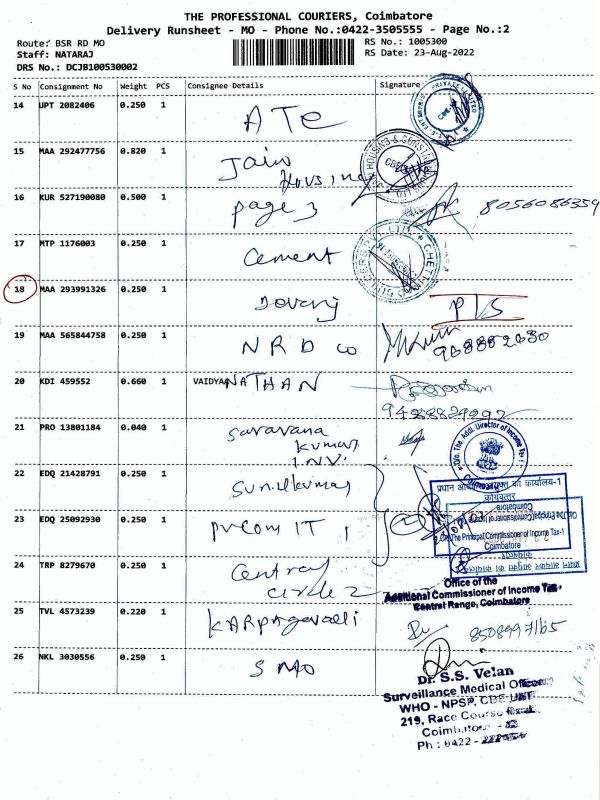 THE PROFESSIONAL COURIERS, Coimbatore
Delivery Runsheet - MO - Phone No.:0422-3505555 - Page No.:2
Route: BSR RD MO
RS No.: 1005300
Staff: NATARAJ
RS Date: 23-Aug-2022
DRS No.: DCJB100530002
S No Consignment No Weight PCS Consignee Details Signature
14 UPT 2082406 0.250 1 ATC
15 MAA 292477756 0.820 1 Jain
Housing
16 KUR 527190080 0.500 1 page 3 8056086359
17 MTP 1176003 0.250 1 Cement
18 MAA 293991326 0.250 1 Devaraj
19 MAA 565844758 0.250 1 NRD co
20 KDI 459552 0.660 1 VAIDYANATHAN
21 PRO 13801184 0.040 1 Saravana
Kumar
INV.
22 EDQ 21428791 0.250 1 Sunilkumar
23 EDQ 25092930 0.250 1 Prcom IT 1
24 TRP 8279670 0.250 1 Central
circle 2
25 TVL 4573239 0.220 1 KARPAgavalli
26 NKL 3030556 0.250 1 SMO
O/o. The Addl. Director of Income Tax
प्रधान आयकर आयुक्त का कार्यालय-1
कोयंबत्तूर
O/o. The Principal Commissioner of Income Tax-1
Coimbatore
Office of the
Additional Commissioner of Income Tax,
Central Range, Coimbatore
Dr. S.S. Velan
Surveillance Medical Officer
WHO - NPSP, CBE-UNIT
219, Race Course Road,
Coimbatore -
Ph : 0422 -